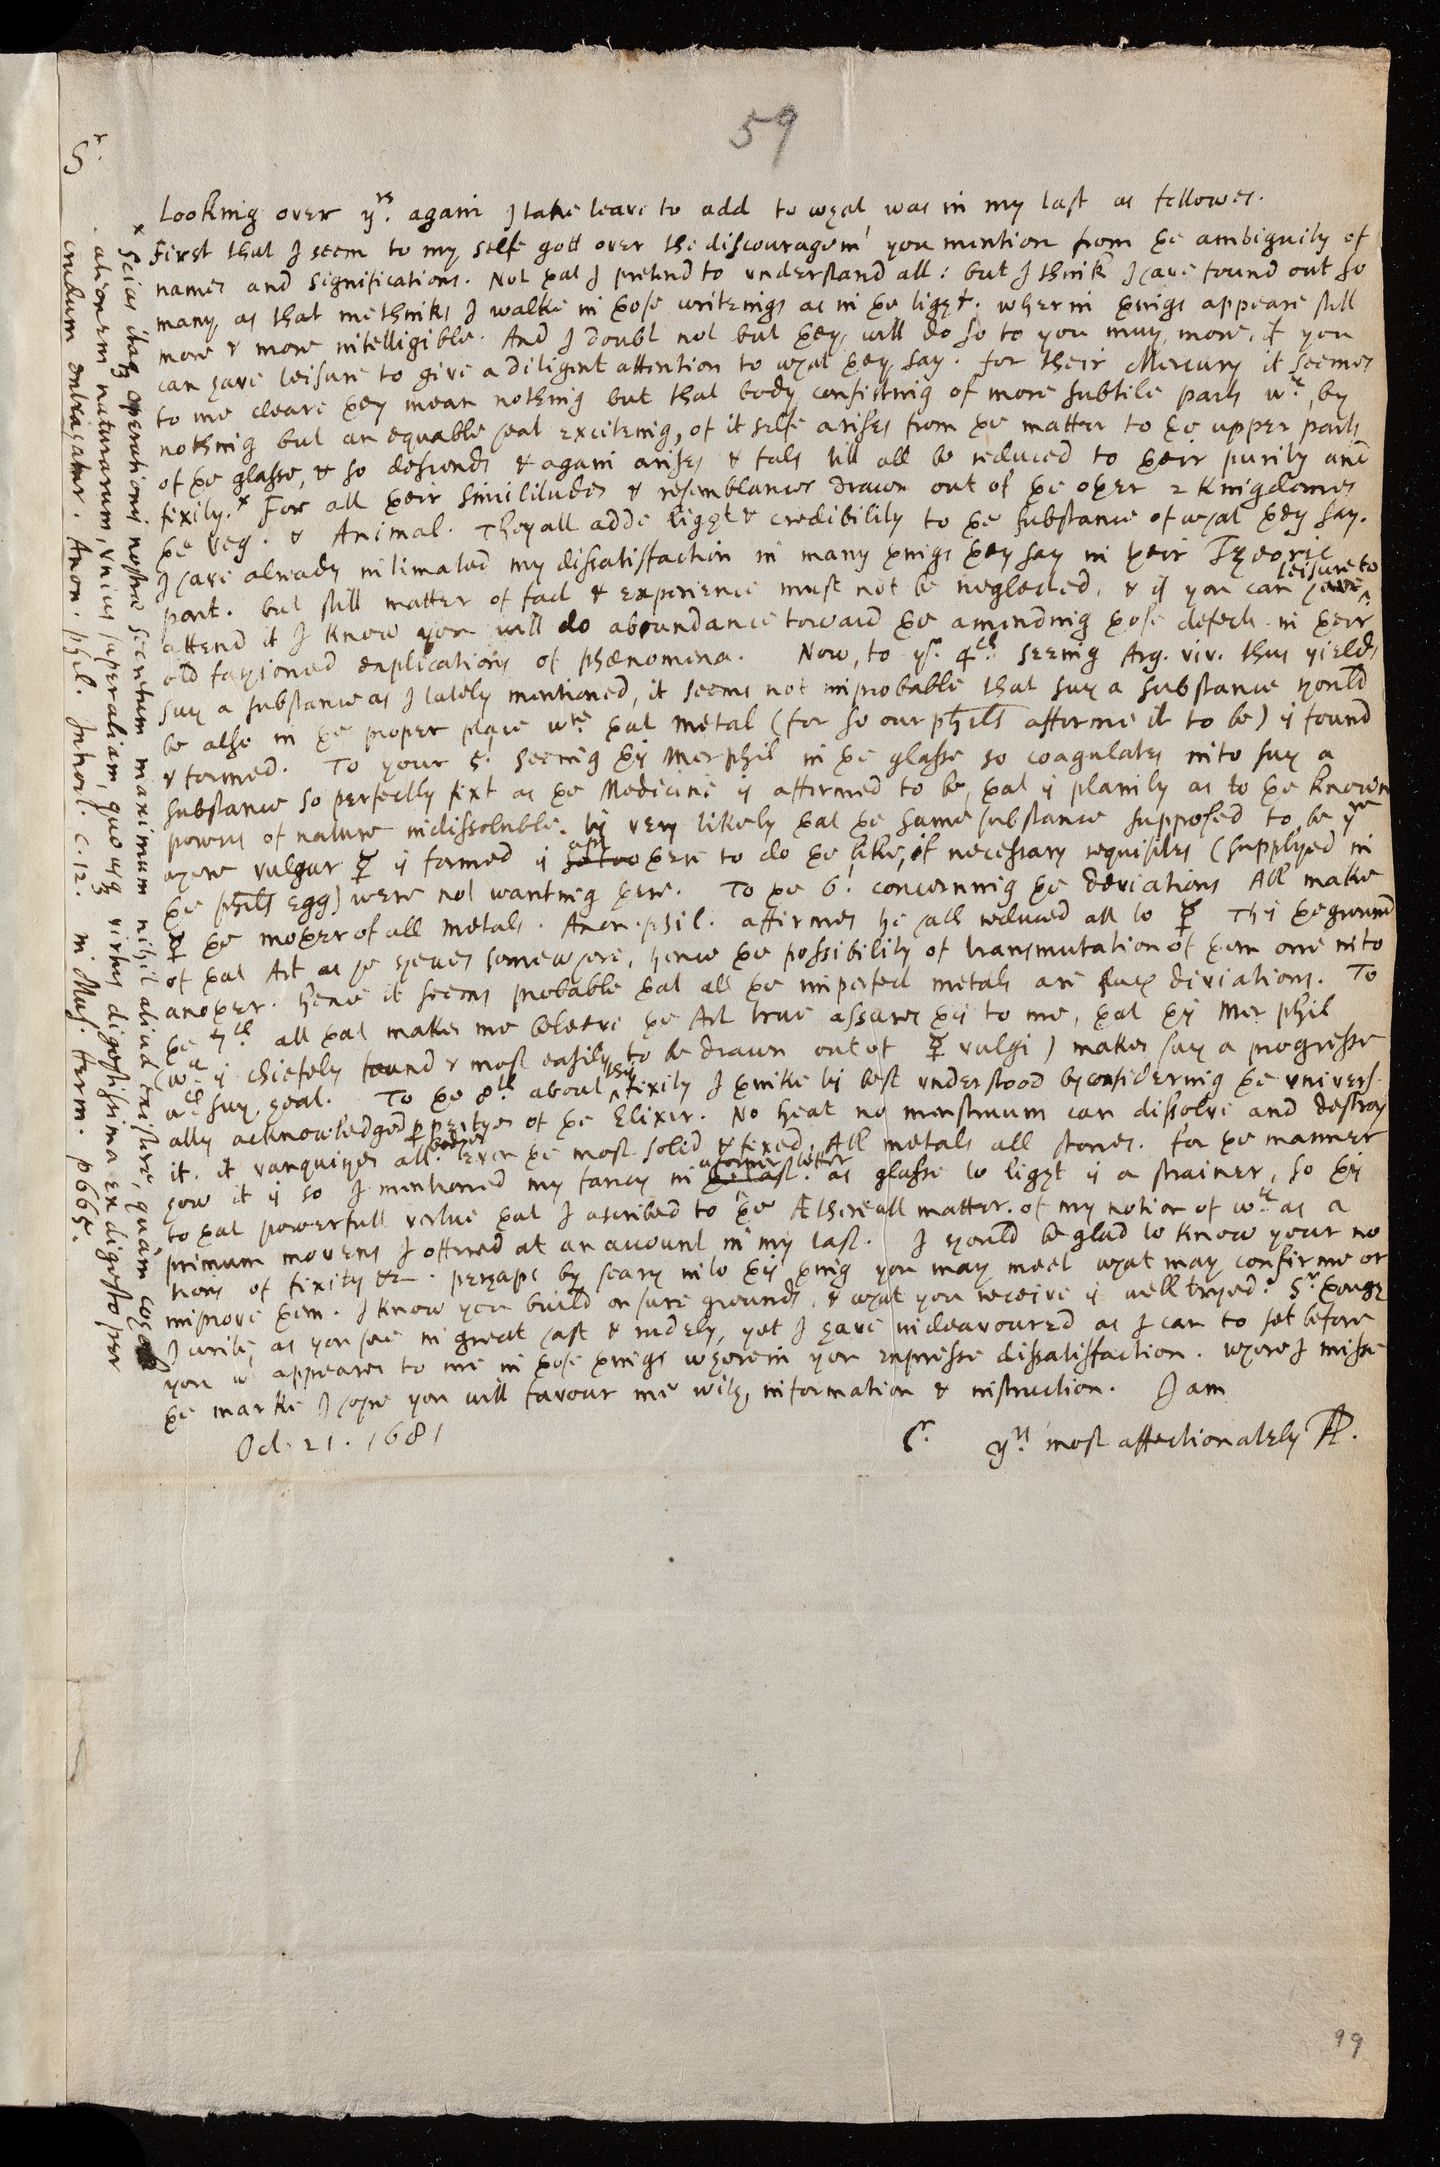 59
Sr.
Looking over yrs. again I take leave to add to what was in my last as followes.
First that I seem to my selfe gott over the discouragemt you mention from the ambiguity of
names and significations. Not that I pretend to understand all: but I think I have found out so
many, as that methinks I walke in those writeings as in the light. wherin things appeare still
more & more intelligible. And I doubt not but they will do so to you much more, if you
can have leisure to give a diligent attention to what they say. for their Mercury it seemes
to me cleare they mean nothing but that body consisting of more subtile parts wch, by
nothing but an equable heat exciteing, of it selfe arises from the matter to the upper parts
of the glasse, & so descends & again arises & fals till all be reduced to their purity and
fixity.* For all their similitudes & resemblances drawn out of the other 2 Kingdomes
the Veg. & Animal. They all adde light & credibility to the substance of what they say.
I have already intimated my dissatisfaction in many things they say in their Theoric
part. but still matter of fact & experience must not be neglected, & if you can have ^leisure to
attend it I know you will do aboundance toward the amending those defects in their
old fashioned explications of phænomena. Now, to yr. 4th seeing Arg. viv. thus yields
such a substance as I lately mentioned, it seems not improbable that such a substance should
be also in the proper place wre that metal (for so our phils affirme it to be) is found
& formed. To your 5. seeing this Mer phil in the glasse so coagulates into such a
substance so perfectly fixt as the Medicine is affirmed to be, that is plainly as to the known
powers of nature indissoluble. tis very likely that the same substance supposed to be yre
where vulgar ☿ is formed is apt there to do the like, if necessary requisites (supplyed in
the phils Egg) were not wanting there. To the 6. concerning the deviations All make
☿ the mother of all metals. Anon. phil. affirmes he hath reduced all to ☿ This the ground
of that Art as he shewes somewhere, hence the possibility of transmutation of them one into
another. hence it seems probable that all the imperfect metals are such deviations. To
the 7th all that makes me beleeve the Art true assures this to me, that this Mer phil
(wch is chiefely found & most easily to be drawn out of ☿ vulgi) makes such a progresse
wth such heat. To the 8th about ^this fixity I thinke tis best understood by considering the univers-
ally acknowledged properties of the Elixir. No heat no menstruum can dissolve and destroy
it. it vanquishes all bodyes Even the most solid & fixed, All metals all stones. for the manner
how it is so I mentioned my fancy in a former letter the last. as glasse to light is a strainer, so this
to that powerfull vertue that I ascribed to the Æthereall matter. of my notion of wch as a
primum movens I offered at an account in my last. I should be glad to know your no
tions of fixity &c. perhaps by search into this thing you may meet what may confirme or
improve them. I know you build on sure grounds, & what you receive is well tryed. Sr though
I write, as you see in great hast & rudely, yet I have indeavoured as I can to set before
you wt appeares to me in those things wherein you expresse dissatisfaction. where I misse
the marke I hope you will favour me with information & instruction. I am
Oct. 21. 1681 Sr. yrs most affectionately AP.
* Scias itaq operationis nostræ secretum maximum nihil aliud existere, quàm coho-
-ationem naturarum, unius super aliam, quousq virtus digestissima ex digesto per
crudum extrahatur. Anon. phil. Introit. c. 12. in Mus. Herm. p665.
99